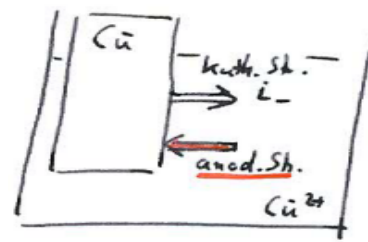 Cu
kath. St.
i_
anod. St.
Cu²⁺